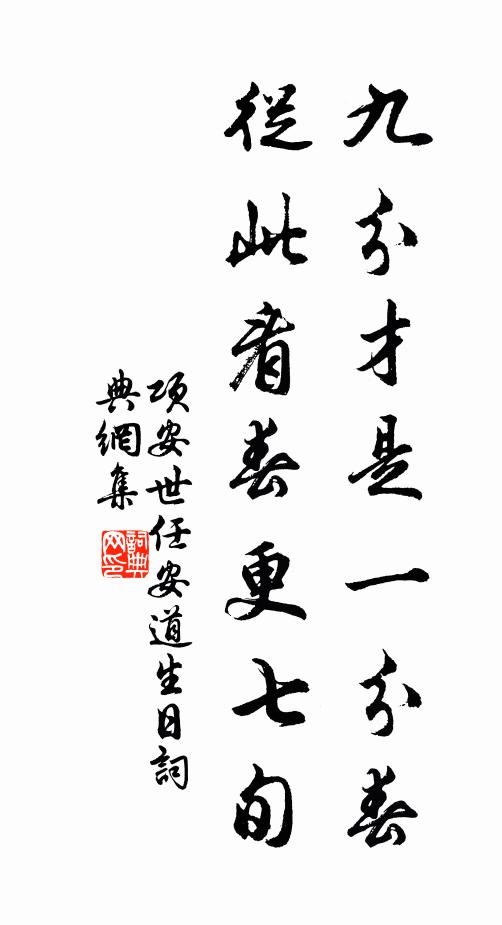 九分才是一分春
從此看春更七旬
項安世任安道生日詞
典網集
詞典
网印